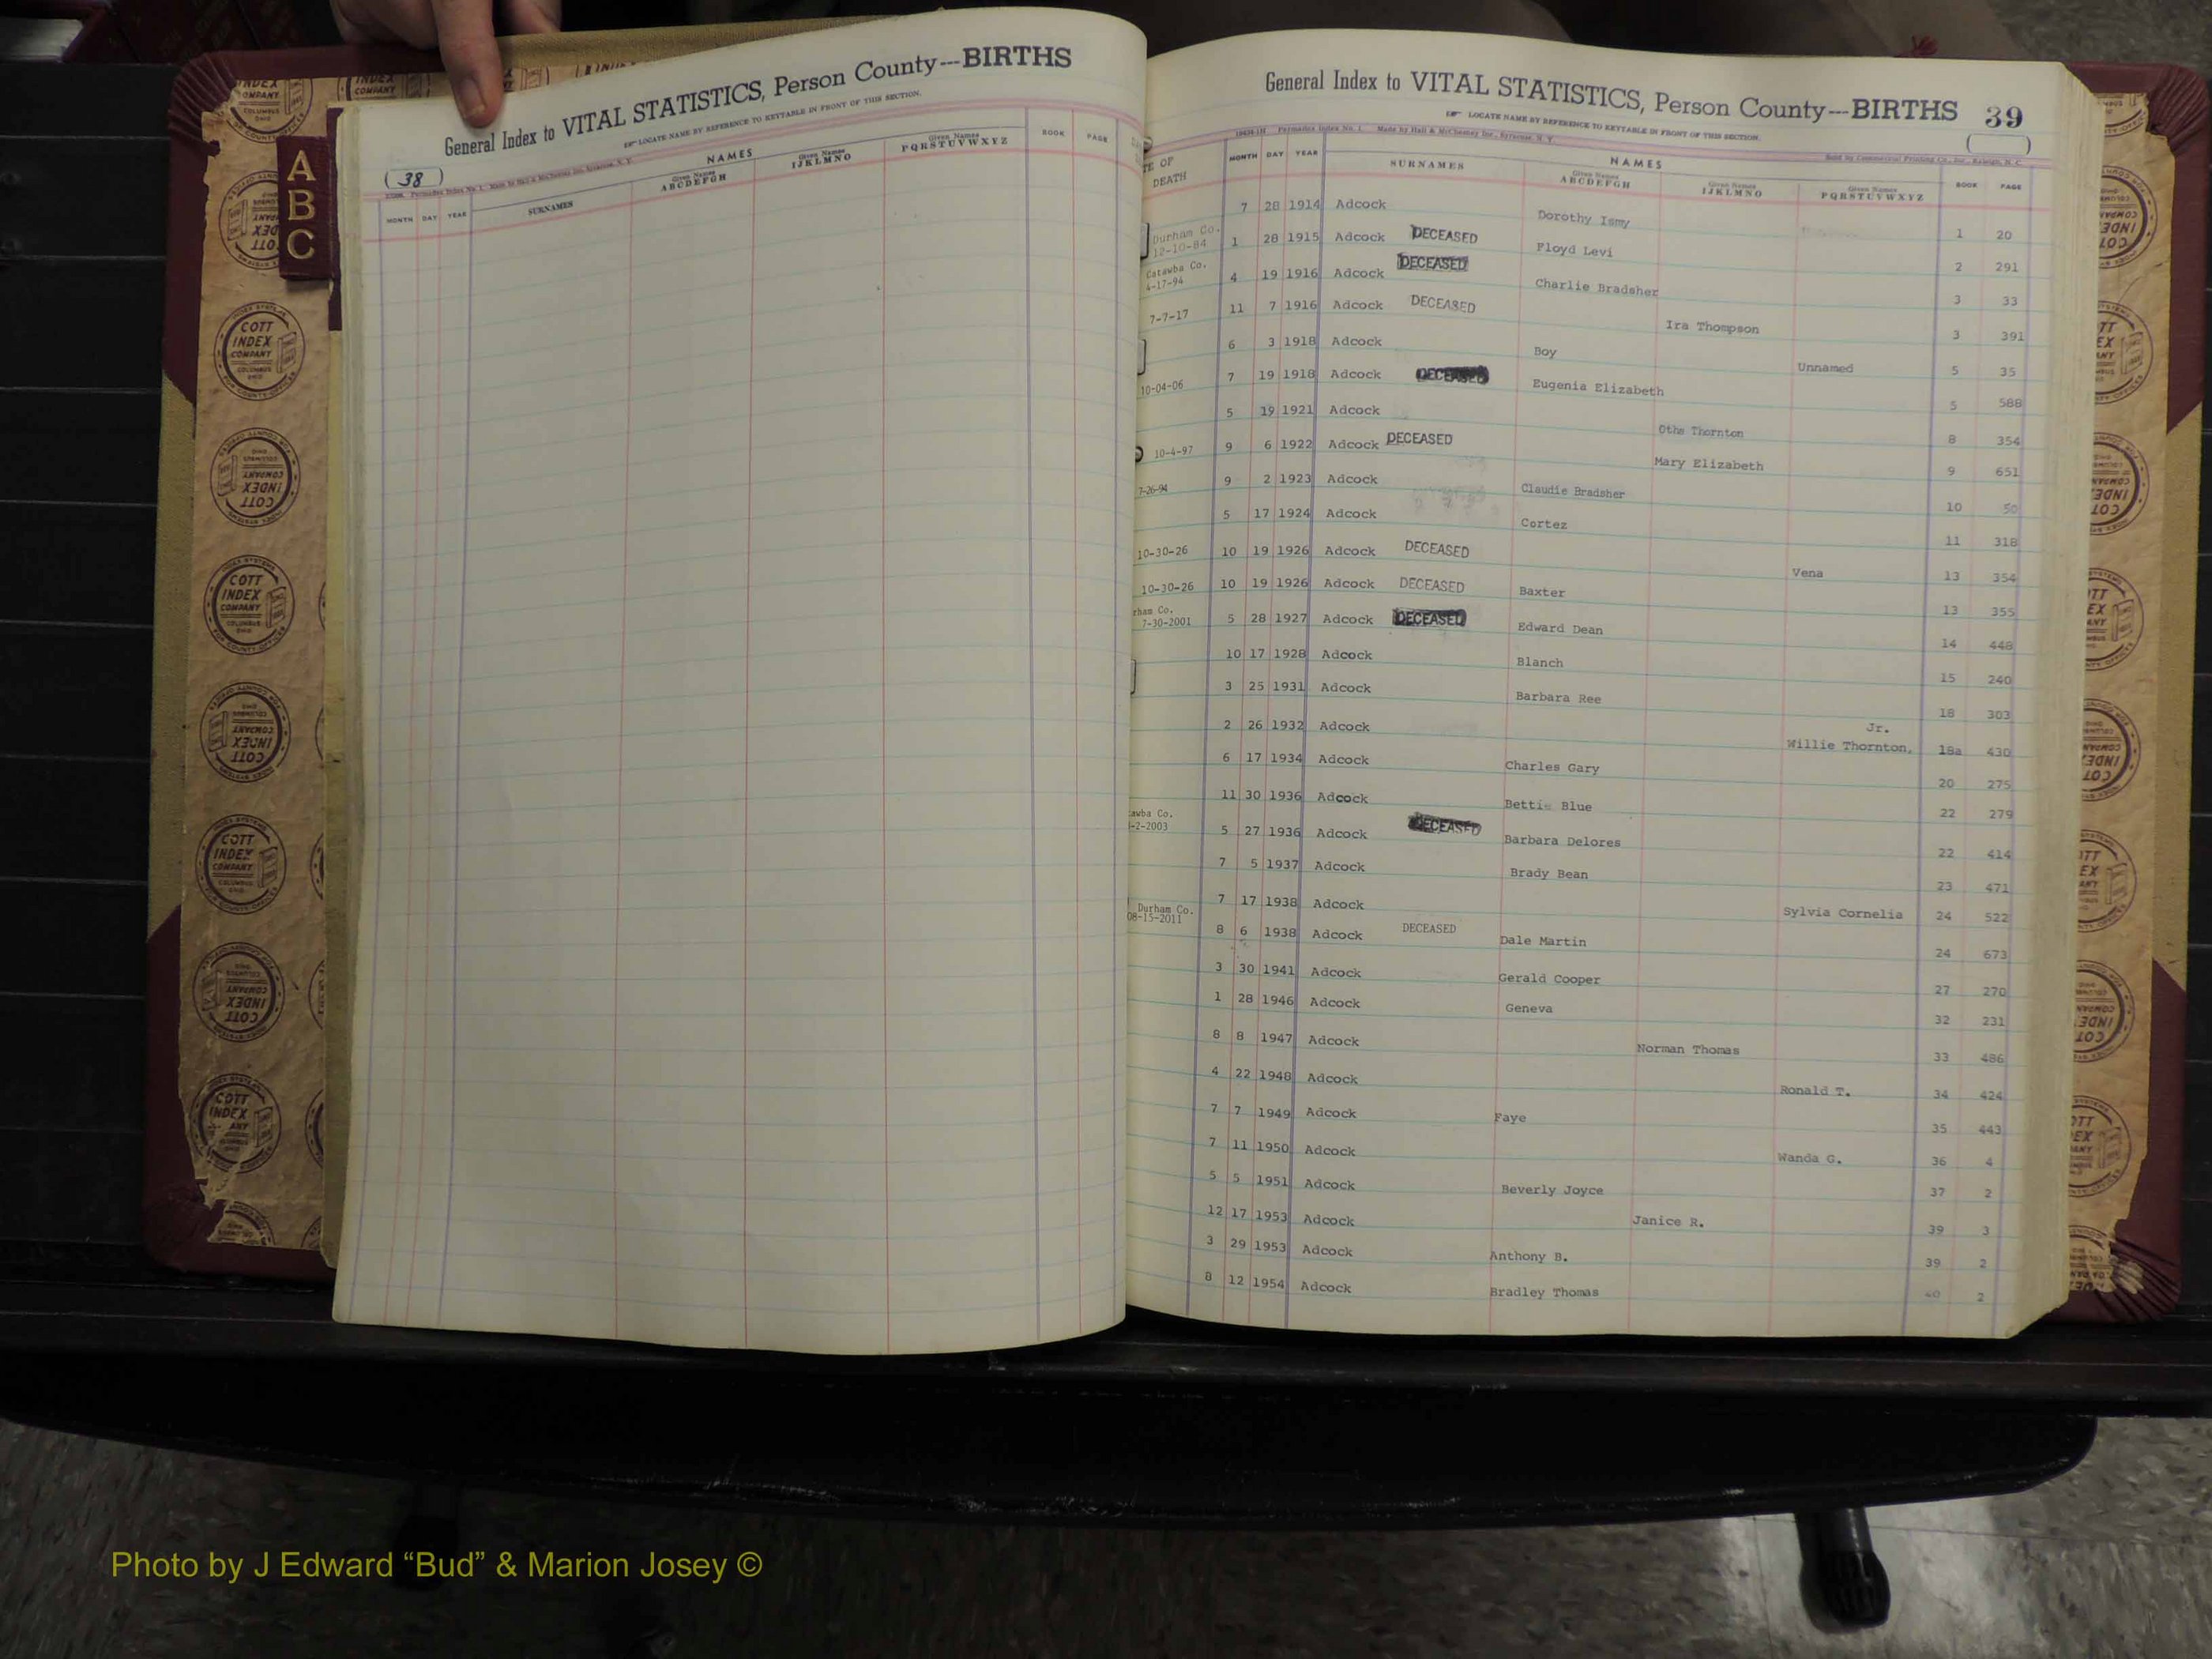 A
B
C
General Index to VITAL STATISTICS, Person County---BIRTHS
LOCATE NAME BY REFERENCE TO KEYTABLE IN FRONT OF THIS SECTION.
(38)
NAMES
MONTH DAY YEAR SURNAMES Given Names ABCDEFGH Given Names IJKLMNO Given Names PQRSTUVWXYZ BOOK PAGE
General Index to VITAL STATISTICS, Person County---BIRTHS 39
LOCATE NAME BY REFERENCE TO KEYTABLE IN FRONT OF THIS SECTION.
Made by Hall & McChesney Inc., Syracuse, N. Y. Sold by Commercial Printing Co., Inc., Raleigh, N. C.
NAMES
OF DEATH MONTH DAY YEAR SURNAMES Given Names ABCDEFGH Given Names IJKLMNO Given Names PQRSTUVWXYZ BOOK PAGE
7 28 1914 Adcock Dorothy Ismy 1 20
Durham Co. 12-10-84 1 28 1915 Adcock DECEASED Floyd Levi 2 291
Catawba Co. 4-17-94 4 19 1916 Adcock DECEASED Charlie Bradsher 3 33
7-7-17 11 7 1916 Adcock DECEASED Ira Thompson 3 391
6 3 1918 Adcock Boy Unnamed 5 35
10-04-06 7 19 1918 Adcock DECEASED Eugenia Elizabeth 5 588
5 19 1921 Adcock Otha Thornton 8 354
10-4-97 9 6 1922 Adcock DECEASED Mary Elizabeth 9 651
7-26-94 9 2 1923 Adcock Claudie Bradsher 10 50
5 17 1924 Adcock Cortez 11 318
10-30-26 10 19 1926 Adcock DECEASED Vena 13 354
10-30-26 10 19 1926 Adcock DECEASED Baxter 13 355
rham Co. 7-30-2001 5 28 1927 Adcock DECEASED Edward Dean 14 448
10 17 1928 Adcock Blanch 15 240
3 25 1931 Adcock Barbara Ree 18 303
2 26 1932 Adcock Willie Thornton, Jr. 18a 430
6 17 1934 Adcock Charles Gary 20 275
11 30 1936 Adcock Bettie Blue 22 279
awba Co. -2-2003 5 27 1936 Adcock DECEASED Barbara Delores 22 414
7 5 1937 Adcock Brady Bean 23 471
7 17 1938 Adcock Sylvia Cornelia 24 522
Durham Co. 08-15-2011 8 6 1938 Adcock DECEASED Dale Martin 24 673
3 30 1941 Adcock Gerald Cooper 27 270
1 28 1946 Adcock Geneva 32 231
8 8 1947 Adcock Norman Thomas 33 486
4 22 1948 Adcock Ronald T. 34 424
7 7 1949 Adcock Faye 35 443
7 11 1950 Adcock Wanda G. 36 4
5 5 1951 Adcock Beverly Joyce 37 2
12 17 1953 Adcock Janice R. 39 3
3 29 1953 Adcock Anthony B. 39 2
8 12 1954 Adcock Bradley Thomas 40 2
COTT INDEX COMPANY
COLUMBUS OHIO
INDEX SYSTEMS FOR COUNTY OFFICES
Photo by J Edward “Bud” & Marion Josey ©